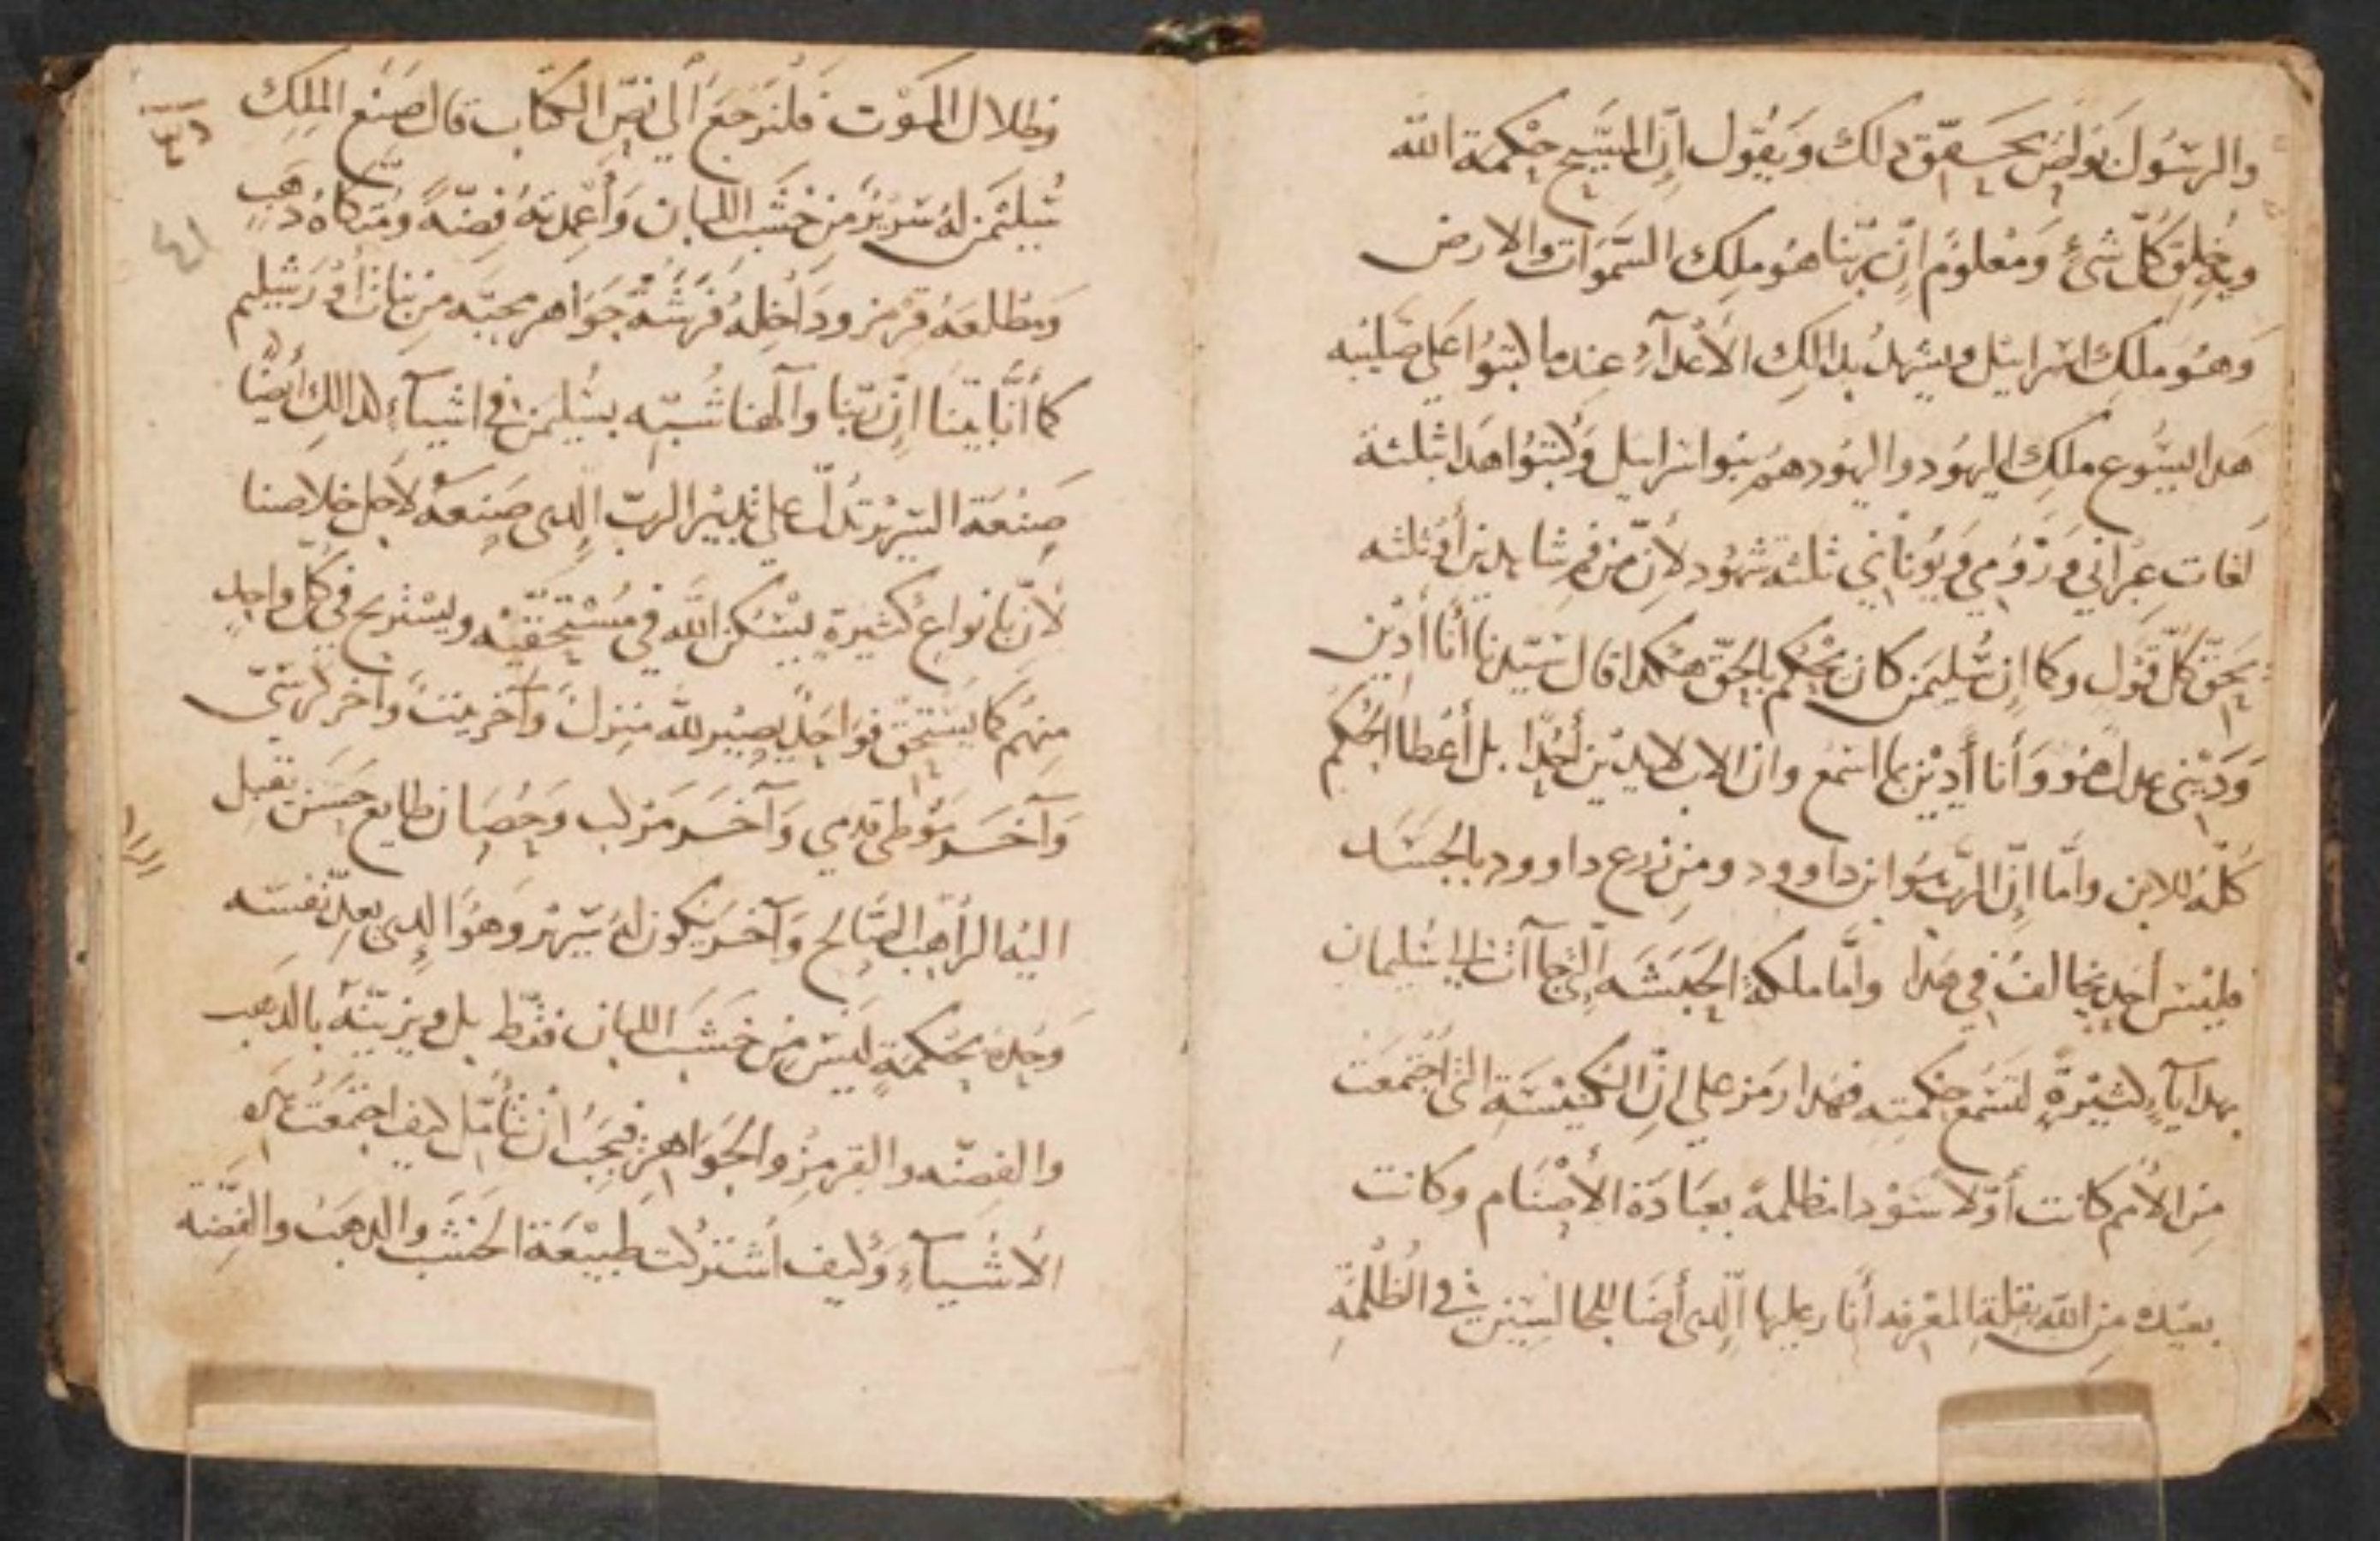 والرسُول بَولص يحَقّق دلك وَيقُول إن المسَيح حِكمة الله
وبه خلق كلّ شئ وَمعْلومٌ ان ربّنا هو ملِك السّموَات والارض
وَهُو ملِك اسرايئل ويشهدُ بدالِك الأعدآءُ عندما كتبُوا على صَليبه
هَدا ايسُوع ملِك اليهُود واليهُود همُ بنوا اسرايئل وَكتبُوا هَدا بثلثة
لغات عِبْراني وَرُوُمي وَيُوناني ثلثة شهُود لأن من فم شاهدين أو ثلثه
يحَقّ كلّ قوْل وكما ان سُّليمَن كان يحْكم بالحَقّ هكدا قال سَيّدنا أنا أدِين
وَدَيْنى عدل هُو وَأنا أدِيْن بما اسْمع وان الاب لا يدِيْن أحدًا بل أعْطا الحُكم
كلهُ للابن وأمَّا إنّ الربّ هُو ابن داوود ومن زرع داوود بالجَسَد
فليْس أحد يخالفُ في هدا وأمَّا ملكة الحَبَشَه التى جآآت إلى سُليمان
بهدايآءٍ كثيْرةٍ لتسْمع حِكمته فهدا رمَز على إنّ الكنِيْسَة التى اجْتمعَت
مِن الأمم كانت أوّلا سَوْدا مظلمةً بعبَادَة الأصْنام وكانت
بعيْده مِن الله بقِلةِ المعْرفه أنار عليها الدى أضا للجالسِيْن في الظُلْمَةِ
وَظلال المَوْت فلنرجَعَ ألي نصّ الكتاب قال صَنع الملِك
سُليمَن لهُ سَرِيْرٌ من خشَب اللبان وَأعْمِدتهُ فِضّةً ومُتكاهُ دهَبٍ
وَمطلعَهُ قِرْمز ودَاخِلهُ فرْشَهُ جَوَاهر محبّه من بنات أورَشليم
كما أنّا بيّنا إنّ ربّنا وآلهنا شُبّه بسُليمَن في اشيآءِ كدالِك أيضًا
صَنْعَة السّرِيْر تدُلّ على تدبيْر الربّ الدى صَنعَهُ لاجل خلاصنا
لأنّ بانواع كثيرةٍ يسْكن الله في مُسْتحقيْه ويسْتريح في كلّ واحِدٍ
مِنهُم كما يَسْتحِقّ فوَاحِدٌ يصِيْر لله منزلً وَآخر بيْتً وآخر كرسّى
وَآخَر مَوْطى قدمي وَآخَر مَرْكب وَحِصَان طايع حَسَن تقبل
اليْه الرأهب الصَّالح وَآخر يَكون لهُ سَرير وَهُوَ الدى يعِدّ نفسَه
وَحِدهُ بحِكمَةٍ ليْس مِن خشَب اللبان فقط بل ويزيّنهُ بالدهَب
والفِضّه والقرمِز والجَوَاهِر فيَجِبُ ان نتأمّل كيف اجْتمَعَت هَدِه
الأشْيآءِ وَكيْف اشترَكت طبِيْعَة الخشَب والدهَب والفِضّة
٤١